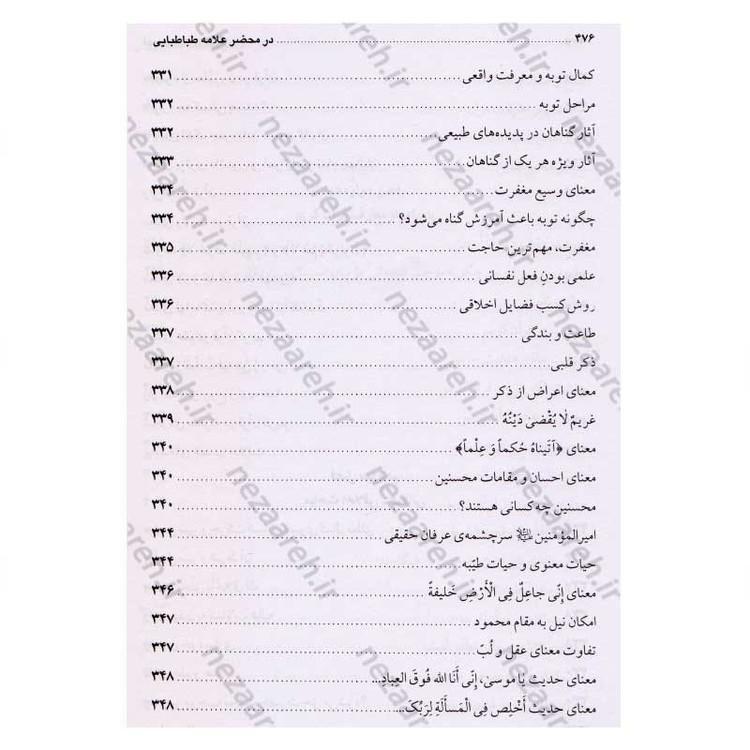 ۴۷۶ ........ در محضر علامه طباطبایی
کمال توبه و معرفت واقعی ........ ۳۳۱
مراحل توبه ........ ۳۳۲
آثار گناهان در پدیده‌های طبیعی ........ ۳۳۲
آثار ویژه هر یک از گناهان ........ ۳۳۳
معنای وسیع مغفرت ........ ۳۳۴
چگونه توبه باعث آمرزش گناه می‌شود؟ ........ ۳۳۴
مغفرت، مهم‌ترین حاجت ........ ۳۳۵
علمی بودنِ فعل نفسانی ........ ۳۳۶
روش کسب فضایل اخلاقی ........ ۳۳۶
طاعت و بندگی ........ ۳۳۷
ذکر قلبی ........ ۳۳۷
معنای اعراض از ذکر ........ ۳۳۸
غریمٌ لٰا یُقْضیٰ دَیْنُهُ ........ ۳۳۹
معنای ﴿آتَیناهُ حُکماً وَ عِلْماً﴾ ........ ۳۴۰
معنای احسان و مقامات محسنین ........ ۳۴۰
محسنین چه کسانی هستند؟ ........ ۳۴۰
امیرالمؤمنین علیه‌السلام سرچشمه‌ی عرفان حقیقی ........ ۳۴۴
حیات معنوی و حیات طیّبه ........ ۳۴۴
معنای إنّی جاعِلٌ فِی الْأَرْضِ خَلیفةً ........ ۳۴۶
امکان نیل به مقام محمود ........ ۳۴۷
تفاوت معنای عقل و لُبّ ........ ۳۴۷
معنای حدیث یٰا موسیٰ، إنّی أَنَا الله فُوقَ العِبادِ... ........ ۳۴۸
معنای حدیث أَخْلِص فِی الْمَسأَلَةِ لِرَبِّکَ... ........ ۳۴۸
nezaareh.ir